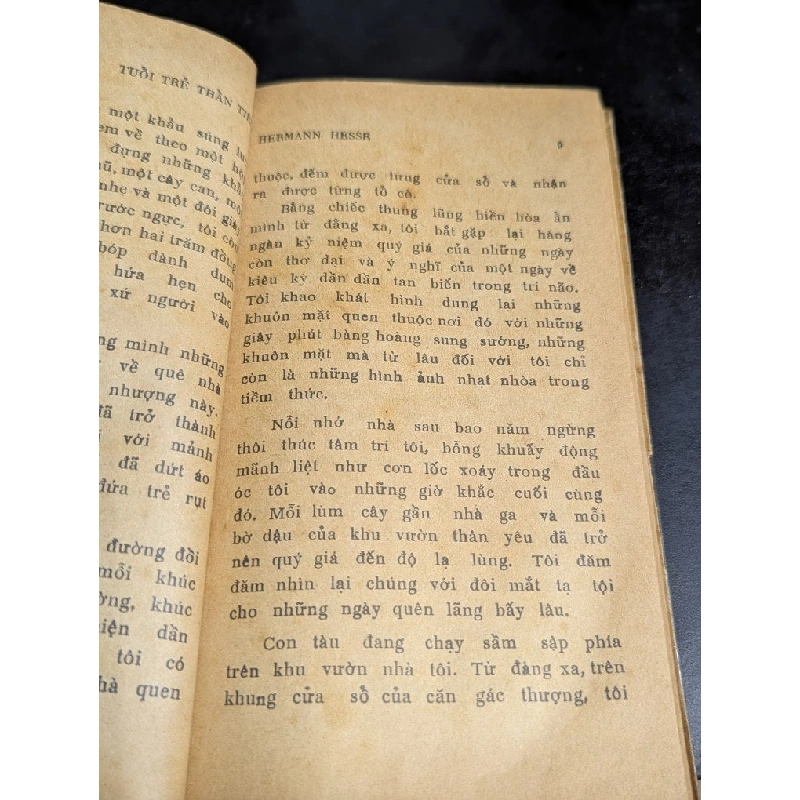 TUỔI TRẺ THẦN
một khẩu súng
em về theo một
đựng những
một cây can,
nhẹ và một đôi
trước ngực, tôi còn
hơn hai trăm đồng
bóp dành dụm
hứa hẹn cho
xứ người vào
mình những
về quê nhà
nhượng này.
đã trở thành
với mảnh
đã dứt áo
đứa trẻ rụt
đường đồi
mỗi khúc
khúc
hiện dần
tôi có
quen
HERMANN HESSE
5
thuộc, đếm được từng cửa sổ và nhận
ra được từng tổ cò.
Bằng chiếc thung lũng hiền hòa ẩn
mình từ đằng xa, tôi bắt gặp lại hàng
ngàn kỷ niệm quý giá của những ngày
còn thơ dại và ý nghĩ của một ngày về
kiêu kỳ dần dần tan biến trong trí não.
Tôi khao khát hình dung lại những
khuôn mặt quen thuộc nơi đó với những
giây phút bàng hoàng sung sướng, những
khuôn mặt mà từ lâu đối với tôi chỉ
còn là những hình ảnh nhạt nhòa trong
tiềm thức.
Nỗi nhớ nhà sau bao năm ngừng
thôi thúc tâm trí tôi, bỗng khuấy động
mãnh liệt như cơn lốc xoáy trong đầu
óc tôi vào những giờ khắc cuối cùng
đó. Mỗi lùm cây gần nhà ga và mỗi
bờ dậu của khu vườn thân yêu đã trở
nên quý giá đến độ lạ lùng. Tôi đăm
đăm nhìn lại chúng với đôi mắt tạ tội
cho những ngày quên lãng bấy lâu.
Con tàu đang chạy sầm sập phía
trên khu vườn nhà tôi. Từ đàng xa, trên
khung cửa sổ của căn gác thượng, tôi